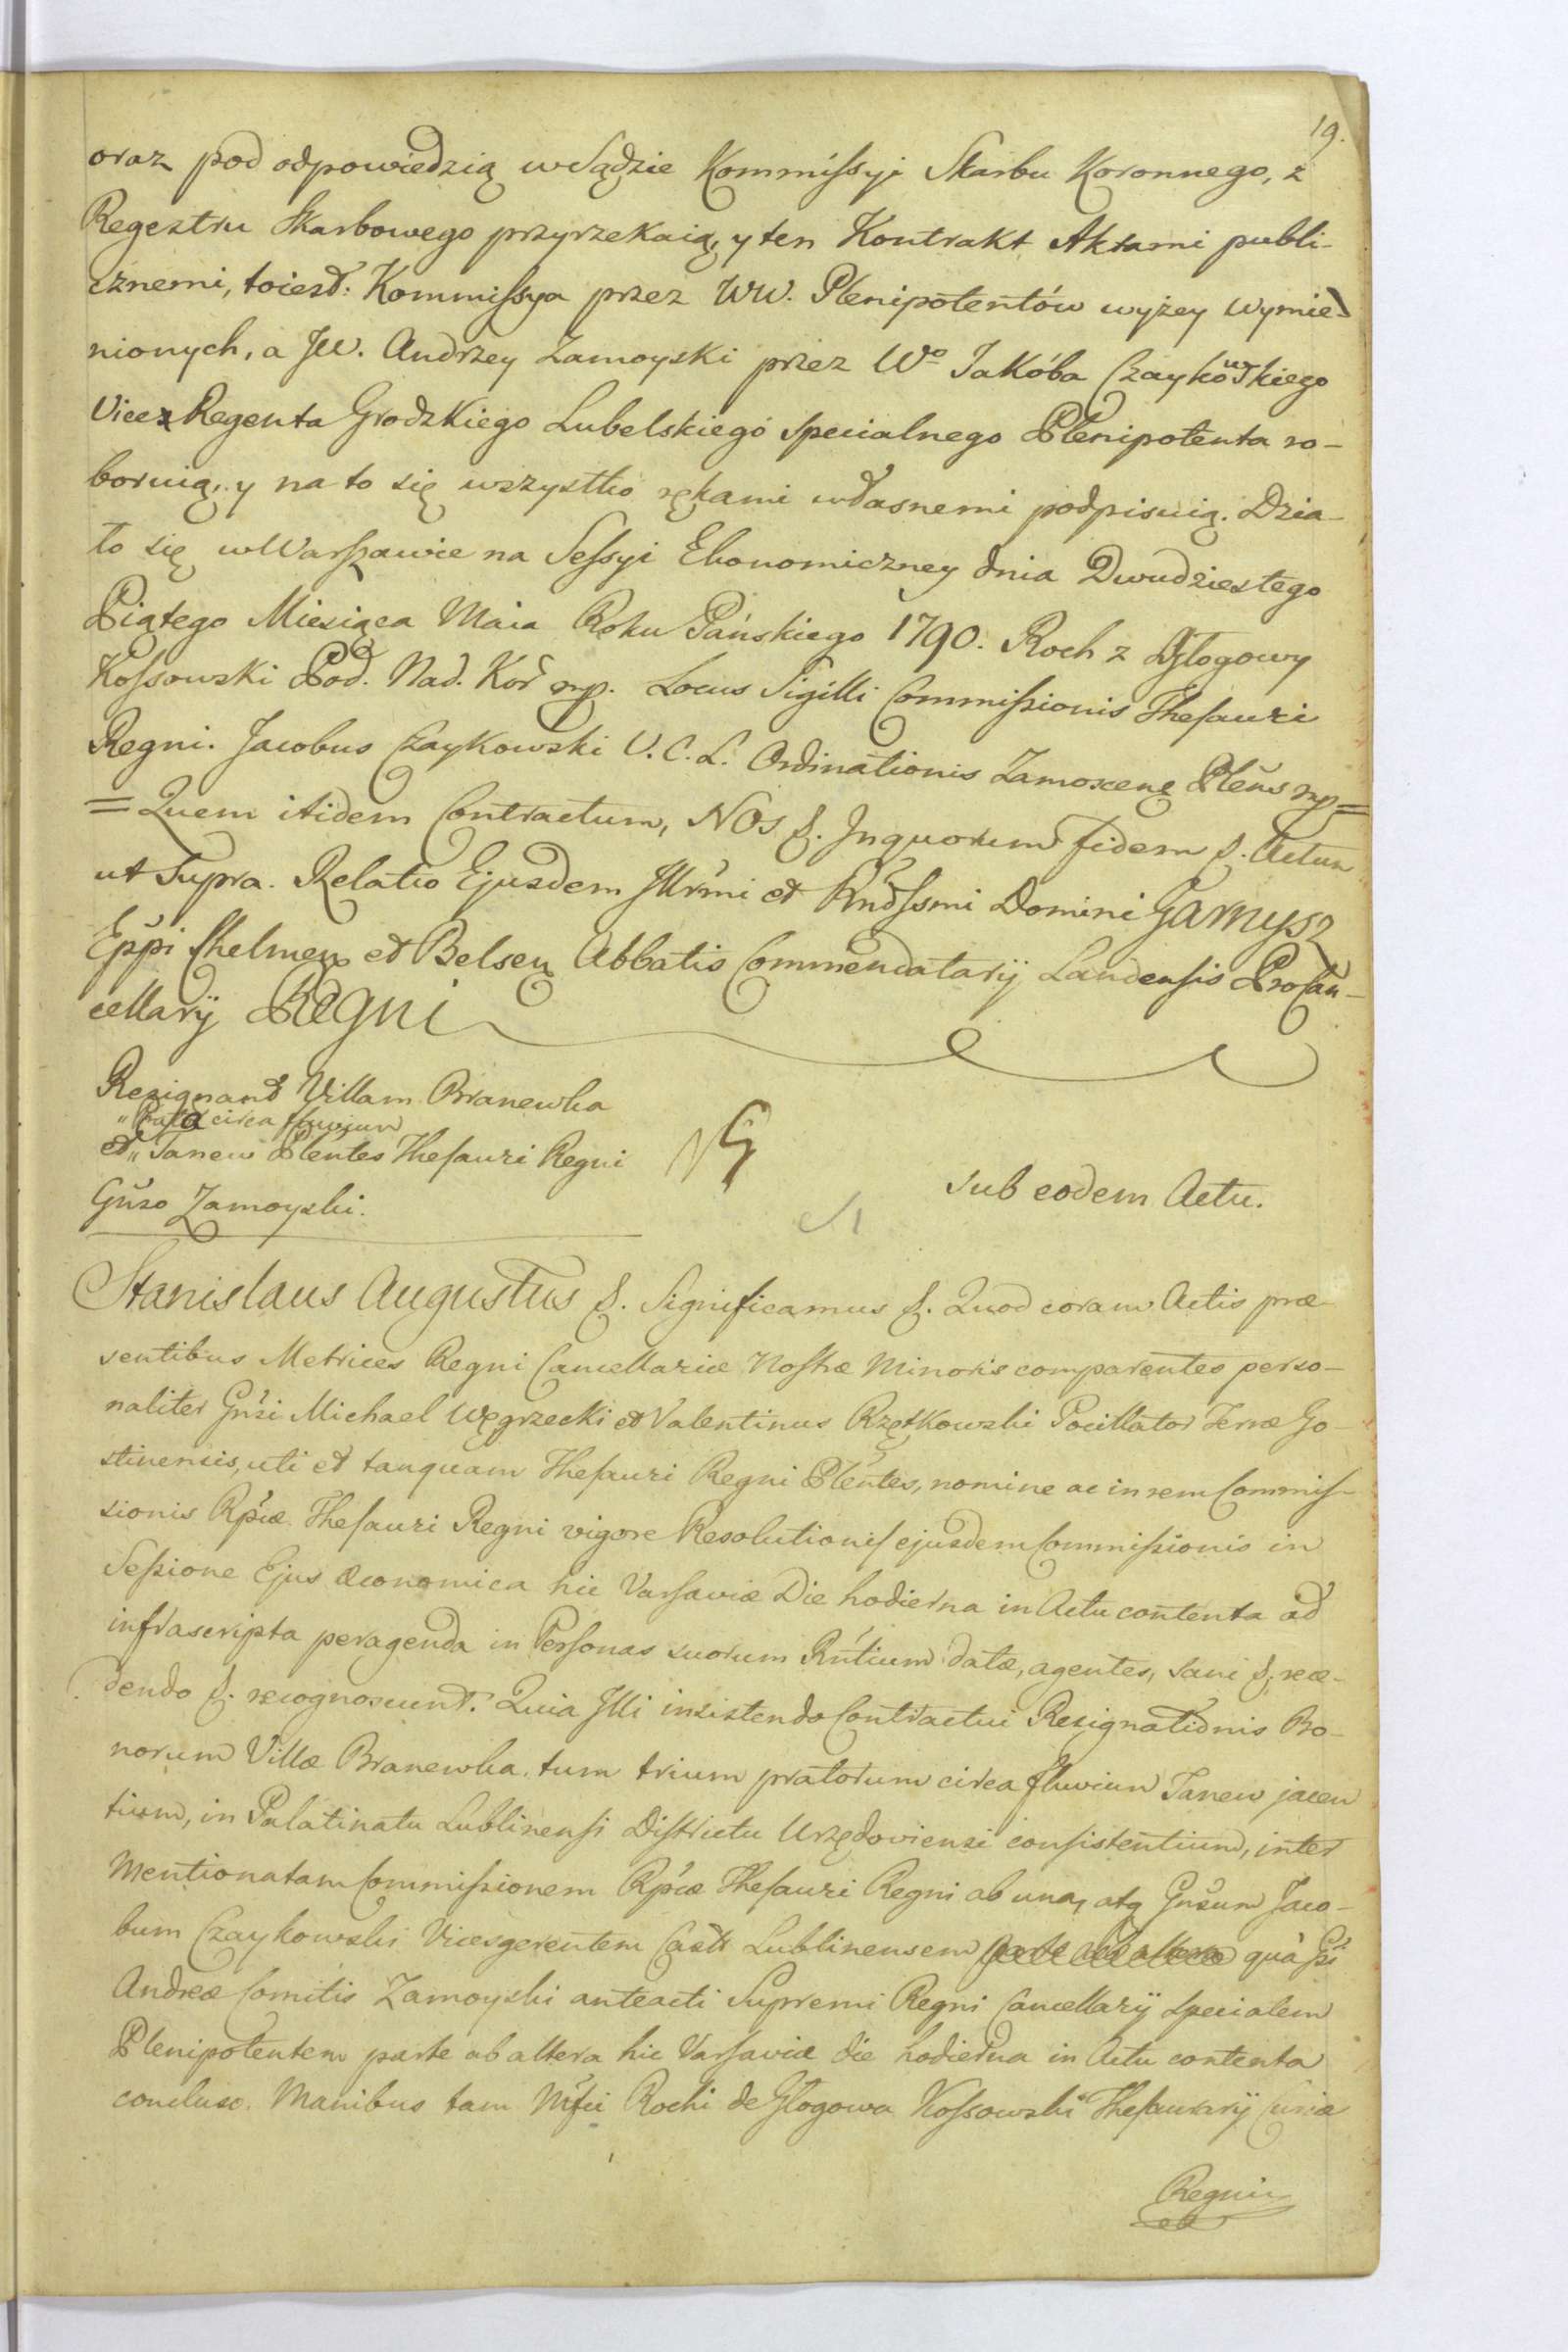 19.
oraz pod odpowiedzią w Sądzie Kommissyi Skarbu Koronnego, z
Regestru Skarbowego przyrzekaią, y ten Kontrakt Aktami publi-
cznemi, toiest: Kommissya przez WW. Plenipotentów wyżey wymie-
nionych, a JW. Andrzey Zamoyski przez Wo Jakóba Czaykowskiego
Vices Regenta Grodzkiego Lubelskiego Specialnego Plenipotenta ro-
boruią, y na to się wszystko rękami własnemi podpisuią. Dzia-
ło się w Warszawie na Sessyi Ekonomiczney dnia Dwudziestego
Piątego Miesiąca Maia Roku Pańskiego 1790. Roch z Głogowy
Kossowski Pod. Nad. Kor mp. Locus Sigilli Commissionis Thesauri
Regni. Jacobus Czaykowski V. C. L. Ordinationis Zamoscenę Pleńs mp =
= Quem itidem Contractum, Nos &. In quorum fidem &. Actum
ut Supra. Relatio Ejusdem Illrmi et Rndssmi Domini Garnysz
Eppi Chelmen et Belsen Abbatis Commendatarij Landensis ProCan-
cellarij Regni
Resignant Villam Branewka
" Prata circa fluvium
et " Tanew Plentes Thesauri Regni
Gnso Zamoyski.
sub eodem Actu.
Stanislaus Augustus &. Significamus &. Quod coram Actis præ-
sentibus Metrices Regni Cancellariæ Nostræ Minoris comparentes perso-
naliter Gnsi Michael Węgrzecki et Valentinus Rzętkowski Pocillator Terræ Go-
stinensis, uti et tanquam Thesauri Regni Plentes, nomine ac in rem Commis-
sionis Rpcæ Thesauri Regni vigore Resolutionis ejusdem Commissionis in
Sessione Ejus œconomica hic Varsaviæ Die hodierna in Actu contenta ad
infrascripta peragenda in Personas suorum Rntium datæ, agentes, sani &. rece-
dendo &. recognoscunt. Quia Illi insistendo Contractui Resignationis Bo-
norum Villæ Branewka. tum trium pratorum circa fluvium Tanew jacen
tium, in Palatinatu Lublinensi Districtu Urzędoviensi consistentium, inter
Mentionatam Commissionem Rpcæ Thesauri Regni ab una, atq Gnsum Jaco-
bum Czaykowski Vicesgerentem Castr Lublinensem parte ab altera quà
Andreæ Comitis Zamoyski anteacti Supremi Regni Cancellarij specialem
Plenipotentem parte ab altera hic Varsaviæ die hodierna in Actu contenta
concluso. Manibus tam Mfci Rochi de Głogowa Kossowski Thesaurarij Curiæ
Regni